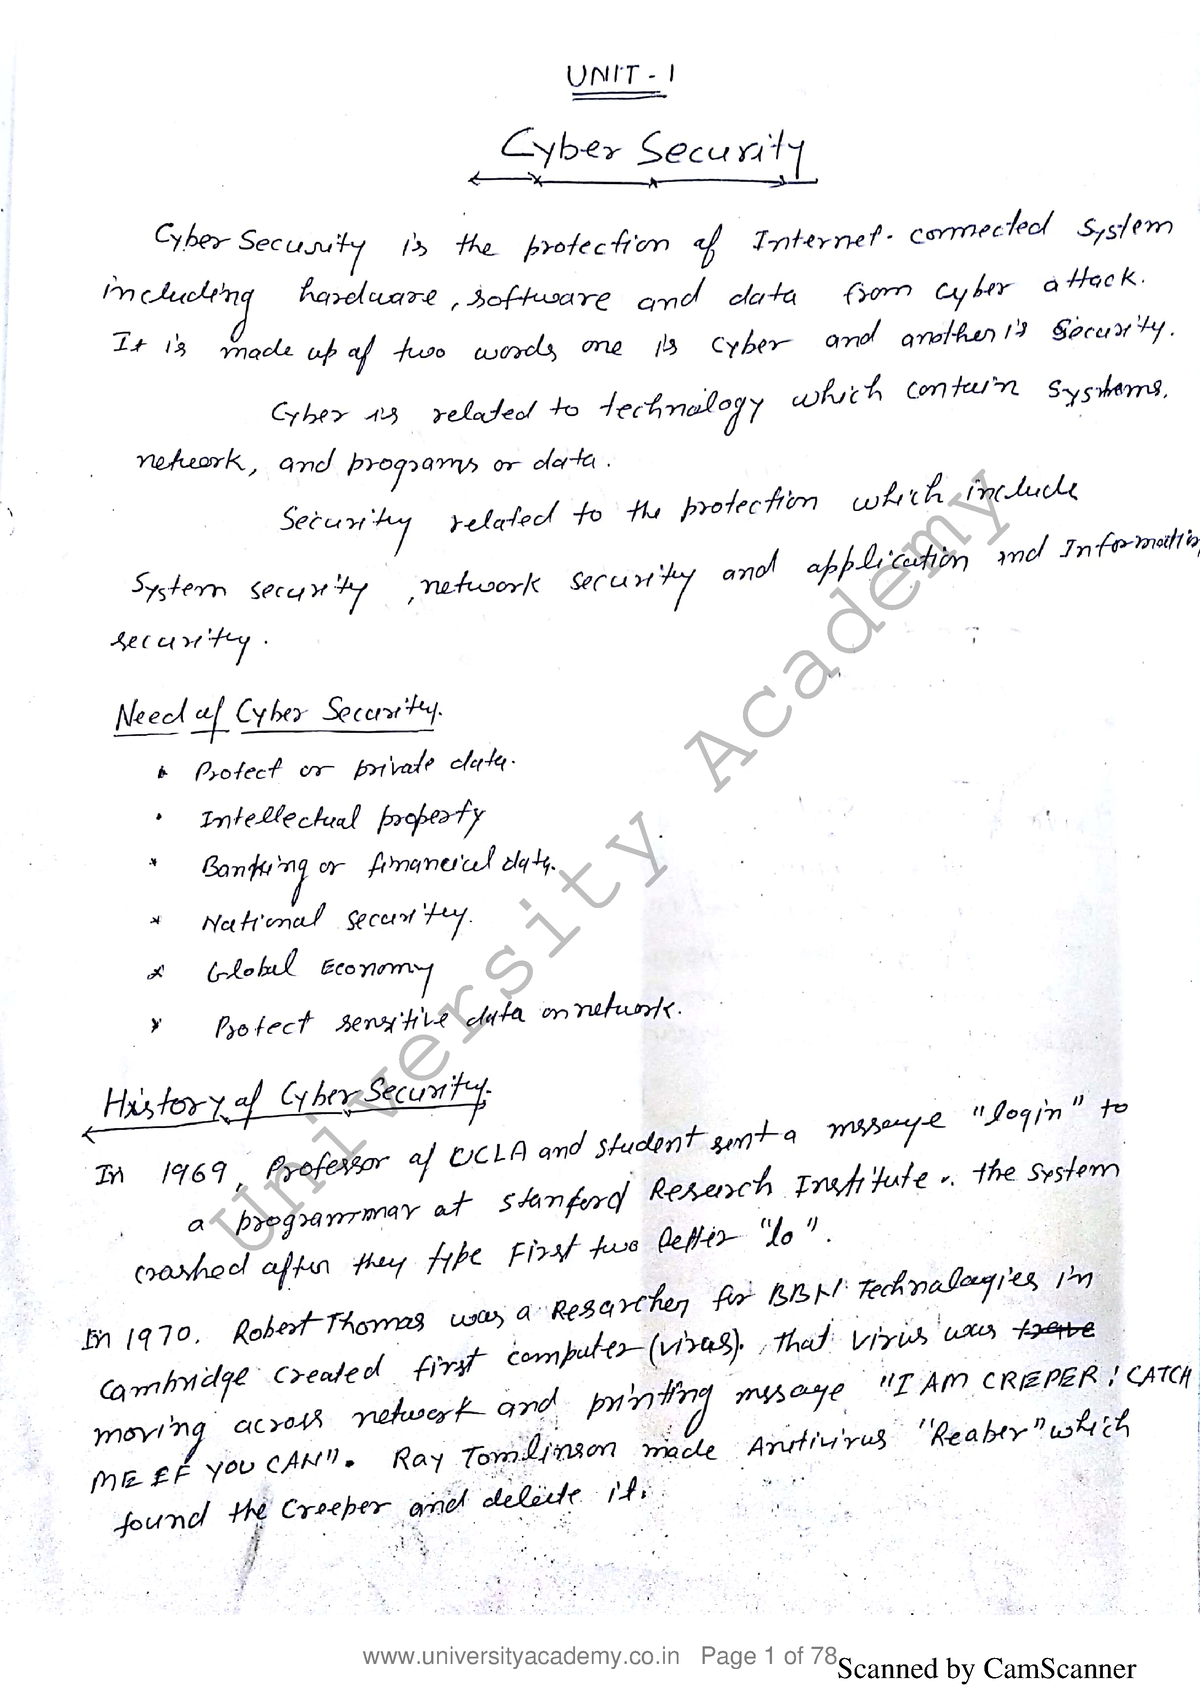 UNIT - 1
Cyber Security
Cyber Security is the protection of Internet-connected System
including hardware, software and data from cyber attack.
It is made up of two words one is cyber and another is Security.
Cyber is related to technology which contain systems.
network, and programs or data.
Security related to the protection which include
System security, network security and application and Information
security.
Need of Cyber Security.
Protect or private data.
Intellectual property
Banking or financial data.
National security.
Global Economy
Protect sensitive data on network.
History of Cyber Security.
In 1969, Professor of UCLA and student sent a message "login" to
a programmar at Stanford Research Institute. the system
crashed after they type First two letter "lo".
In 1970. Robert Thomas was a Researcher for BBN Technologies in
Cambridge created first computer (virus). That virus was
moving across network and printing message "I AM CREPER! CATCH
ME IF YOU CAN". Ray Tomlinson made Antivirus "Reaber" which
found the Creeper and delete it.
University Academy
www.universityacademy.co.in Page 1 of 78
Scanned by CamScanner